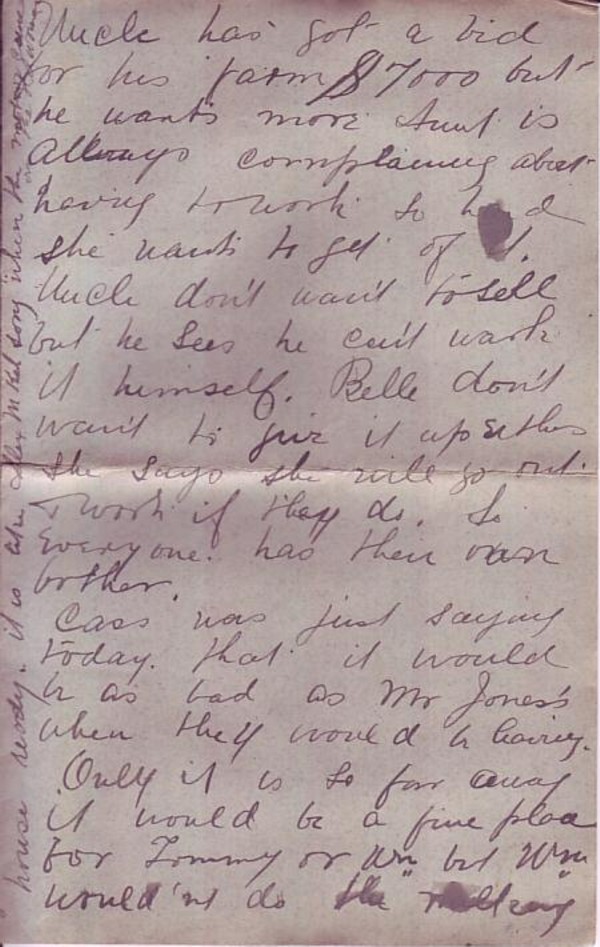 Uncle has got a bid
or his farm $7000 but
he wants more Aunt is
Allways complaining about
having to work so h d
she wants to get of t.
Uncle don't want to sell
but he sees he can't work
it himself. Belle don't
want to give it up either
she says she will go out
to work if they do. So
everyone has their own
bother.
Cass was just saying
today. that it would
be as bad as Mr Jones's
when they would be leaving.
Only it is so far away
it would be a fine place
for Tommy or Wm but Wm
would'nt do the milking
house ready. it is like song when the